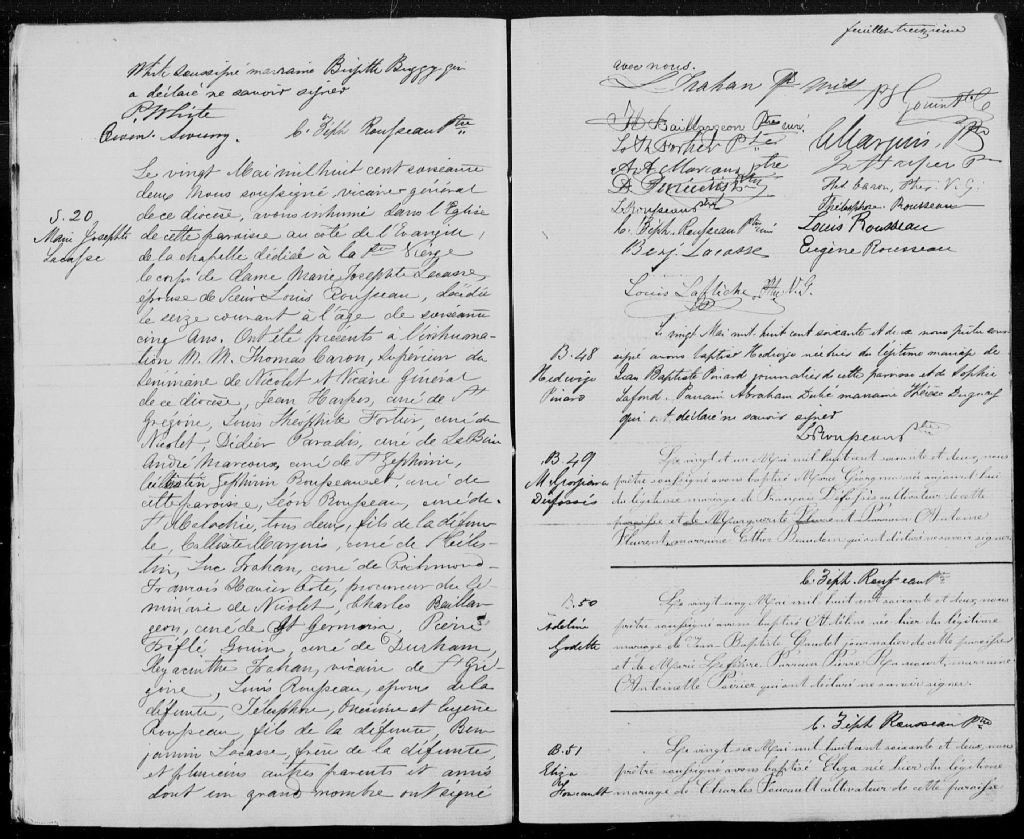 White soussigné marraine Brigitte Buggy qui
a déclaré ne savoir signer
P. White
C. Zeph Rousseau Ptre
S. 20
Marie Josephte
Lacasse
Le vingt Mai mil huit cent soixante
deux Nous soussigné vicaire général
de ce diocèse, avons inhumé dans l'Eglise
de cette paroisse au côté de l'Evangile,
de la chapelle dédiée à la Ste Vierge
le corps de dame Marie Josephte Lacasse
épouse de Sieur Louis Rousseau, décédée
le seize courant à l'âge de soixante
cinq Ans. Ont été présents à l'inhuma-
tion M. M. Thomas Caron, Supérieur du
Séminaire de Nicolet et Vicaire Général
de ce diocèse, Jean Harper, curé de St
Grégoire, Louis Théophile Fortier, curé de
Nicolet, Didier Paradis, curé de La Baie
André Marcoux, curé de St Zephirin,
Zephirin Rousseau, curé de
cette paroisse, Léon Rousseau, curé de
St Malachie, tous deux, fils de la défun-
te, Calliste Marquis, curé de St Céles-
tin, Luc Trahan, curé de Richmond
François Xavier Côté, procureur du Sé-
minaire de Nicolet, Charles Baillar-
geon, curé de St Germain, Pierre
Trèflé Gouin, curé de Durham,
Hyacinthe Trahan, vicaire de St Gré-
goire, Louis Rousseau, époux de la
défunte, Télesphore, Onésime et Eugène
Rousseau, fils de la défunte, Ben-
jamin Lacasse, frère de la défunte,
et plusieurs autres parents et amis
dont un grand nombre ont signé
feuillet treizième
avec nous.
L. Trahan Ptre Miss
Gouin Ptre
Baillargeon Ptre Curé
Ls Th Fortier Ptre
C Marquis, Ptre
A. Marcoux ptre
J. Harper Ptre
D. Paradis Ptre
Ths Caron, Ptre. V. G.
L. Rousseau Ptre
Thélesphore Rousseau
C. Zéph. Rousseau Ptre Curé
Louis Rousseau
Benj. Lacasse
Eugène Rousseau
Louis Laflèche, Ptre V. G.
B. 48
Hedwige
Pinard
Le vingt Mai mil huit cent soixante et deux nous prêtre sous-
signé avons baptisé Hedwige née hier du légitime mariage de
Jean Baptiste Pinard journalier de cette paroisse et de Sophie
Laford. Parrain Abraham Dubé marraine Thérèse Duguay
qui ont déclaré ne savoir signer
L. Rousseau Ptre
B. 49
M. Georgiana
Défossés
Le vingt et un Mai mil huit cent soixante et deux, nous
prêtre soussigné avons baptisé Marie Georgiana née aujourd'hui
du légitime mariage de François Défossés cultivateur de cette
paroisse et de Marguerite Fleurent. Parrain Antoine
Fleurent, marraine Esther Beaudoin qui ont déclaré ne savoir signer.
C. Zéph. Rousseau Ptre
B. 50
Adeline
Godette
Le vingt cinq Mai mil huit cent soixante et deux, nous
prêtre soussigné avons baptisé Adéline née hier du légitime
mariage de Jean Baptiste Gaudet journalier de cette paroisse
et de Marie Lefebvre. Parrain Pierre Rancourt, marraine
Antoinette Poirier qui ont déclaré ne savoir signer.
C. Zéph Rousseau Ptre
B. 51
Eliza
Foucault
Le vingt six Mai mil huit cent soixante et deux, nous
prêtre soussigné avons baptisé Eliza née hier du légitime
mariage de Charles Foucault cultivateur de cette paroisse